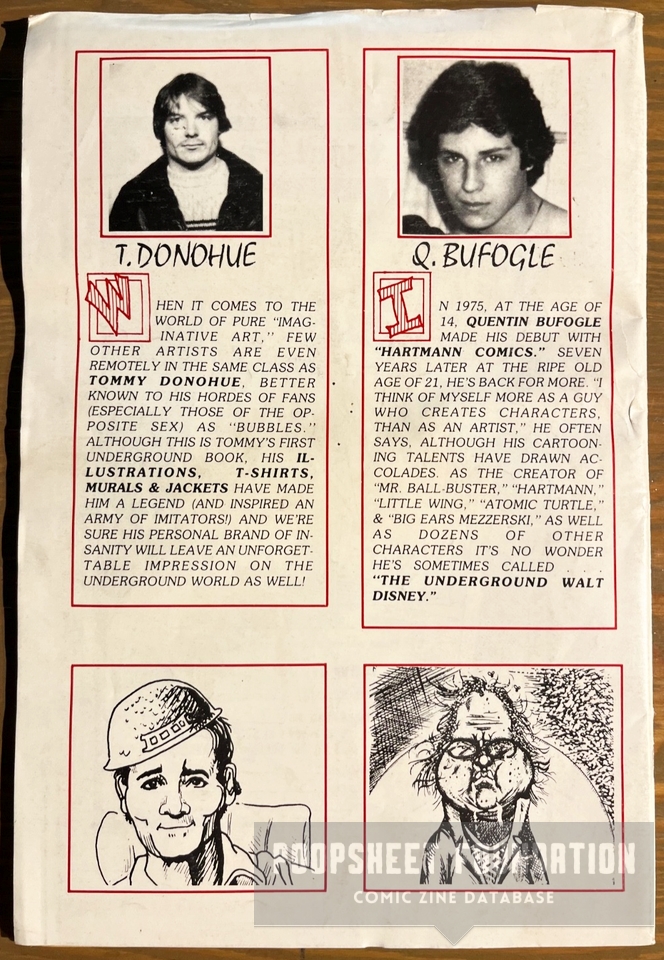 T. DONOHUE
WHEN IT COMES TO THE
WORLD OF PURE "IMAG-
INATIVE ART," FEW
OTHER ARTISTS ARE EVEN
REMOTELY IN THE SAME CLASS AS
TOMMY DONOHUE, BETTER
KNOWN TO HIS HORDES OF FANS
(ESPECIALLY THOSE OF THE OP-
POSITE SEX) AS "BUBBLES."
ALTHOUGH THIS IS TOMMY'S FIRST
UNDERGROUND BOOK, HIS IL-
LUSTRATIONS, T-SHIRTS,
MURALS & JACKETS HAVE MADE
HIM A LEGEND (AND INSPIRED AN
ARMY OF IMITATORS!) AND WE'RE
SURE HIS PERSONAL BRAND OF IN-
SANITY WILL LEAVE AN UNFORGET-
TABLE IMPRESSION ON THE
UNDERGROUND WORLD AS WELL!
Q. BUFOGLE
IN 1975, AT THE AGE OF
14, QUENTIN BUFOGLE
MADE HIS DEBUT WITH
"HARTMANN COMICS." SEVEN
YEARS LATER AT THE RIPE OLD
AGE OF 21, HE'S BACK FOR MORE. "I
THINK OF MYSELF MORE AS A GUY
WHO CREATES CHARACTERS,
THAN AS AN ARTIST," HE OFTEN
SAYS, ALTHOUGH HIS CARTOON-
ING TALENTS HAVE DRAWN AC-
COLADES. AS THE CREATOR OF
"MR. BALL-BUSTER," "HARTMANN,"
"LITTLE WING," "ATOMIC TURTLE,"
& "BIG EARS MEZZERSKI," AS WELL
AS DOZENS OF OTHER
CHARACTERS IT'S NO WONDER
HE'S SOMETIMES CALLED . . .
"THE UNDERGROUND WALT
DISNEY."
POOPSHEET FOUNDATION
COMIC ZINE DATABASE